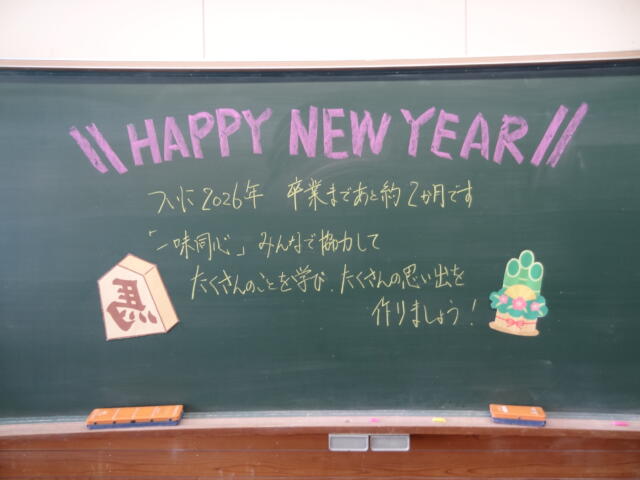 \\HAPPY NEW YEAR//
ついに2026年 卒業まであと約2か月です
「一味同心」みんなで協力して
たくさんのことを学び、たくさんの思い出を
作りましょう!
馬